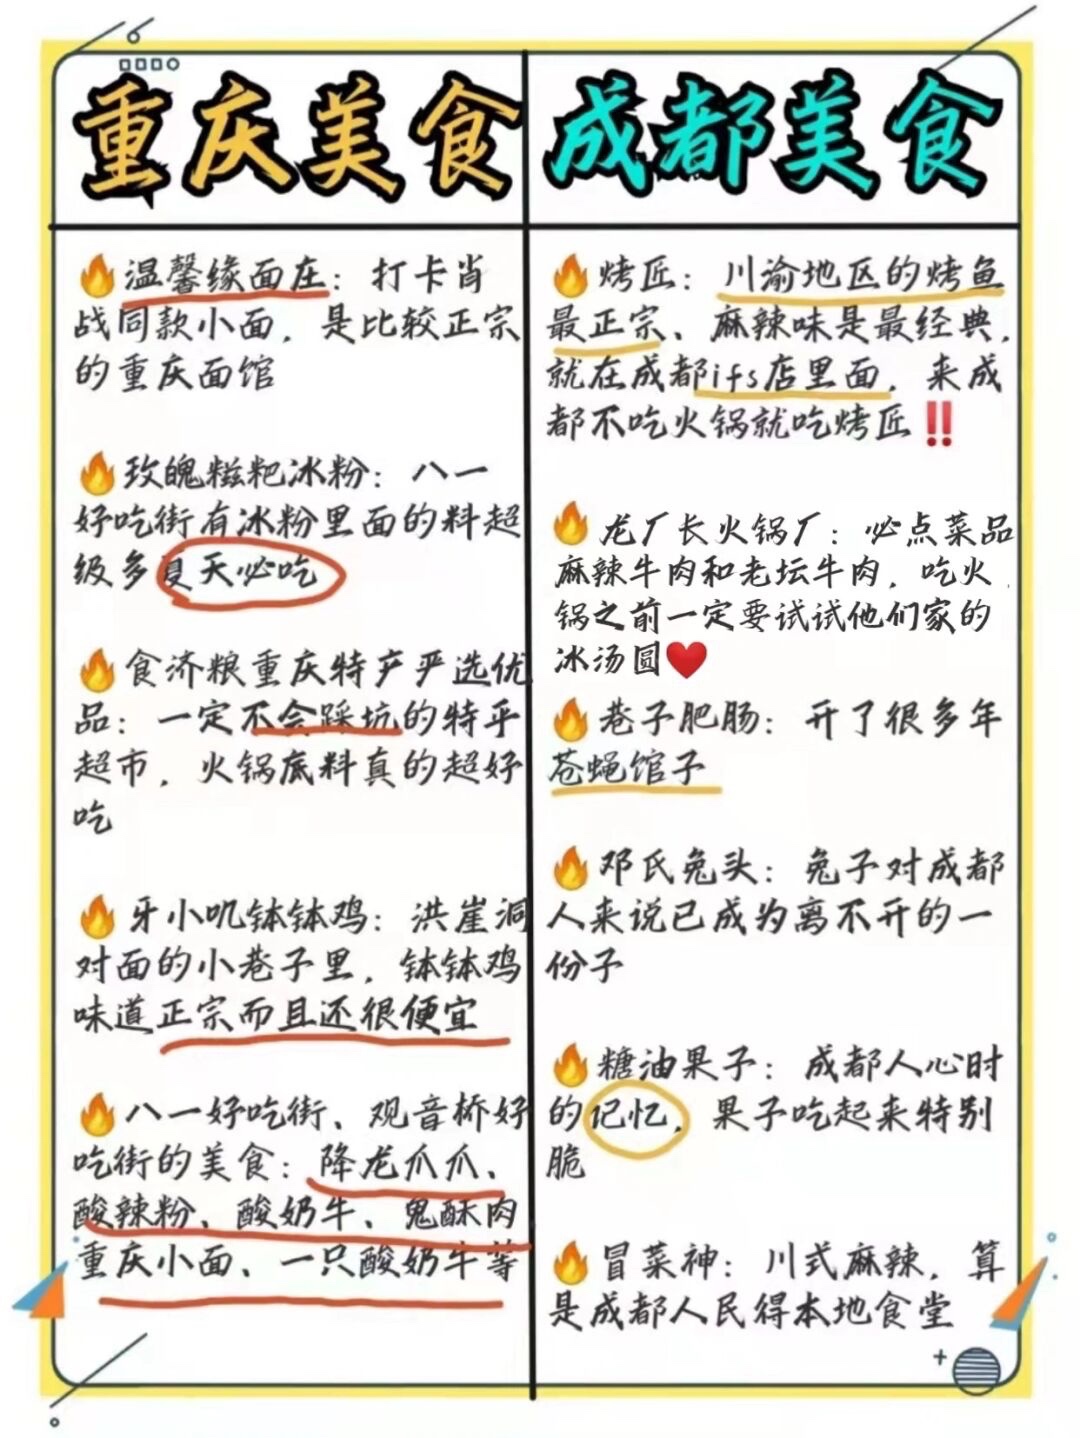 重庆美食
温馨缘面庄：打卡肖
战同款小面，是比较正宗
的重庆面馆
玫瑰糍粑冰粉：八一
好吃街有冰粉里面的料超
级多夏天必吃
食济粮重庆特产严选优
品：一定不会踩坑的特乎
超市，火锅底料真的超好
吃
牙小叽钵钵鸡：洪崖洞
对面的小巷子里，钵钵鸡
味道正宗而且还很便宜
八一好吃街、观音桥好
吃街的美食：降龙爪爪、
酸辣粉、酸奶牛、鬼酥肉
重庆小面、一只酸奶牛等
成都美食
烤匠：川渝地区的烤鱼
最正宗、麻辣味是最经典，
就在成都ifs店里面，来成
都不吃火锅就吃烤匠‼️
龙厂长火锅厂：必点菜品
麻辣牛肉和老坛牛肉，吃火
锅之前一定要试试他们家的
冰汤圆❤️
巷子肥肠：开了很多年
苍蝇馆子
邓氏兔头：兔子对成都
人来说已成为离不开的一
份子
糖油果子：成都人心时
的记忆，果子吃起来特别
脆
冒菜神：川式麻辣，算
是成都人民得本地食堂